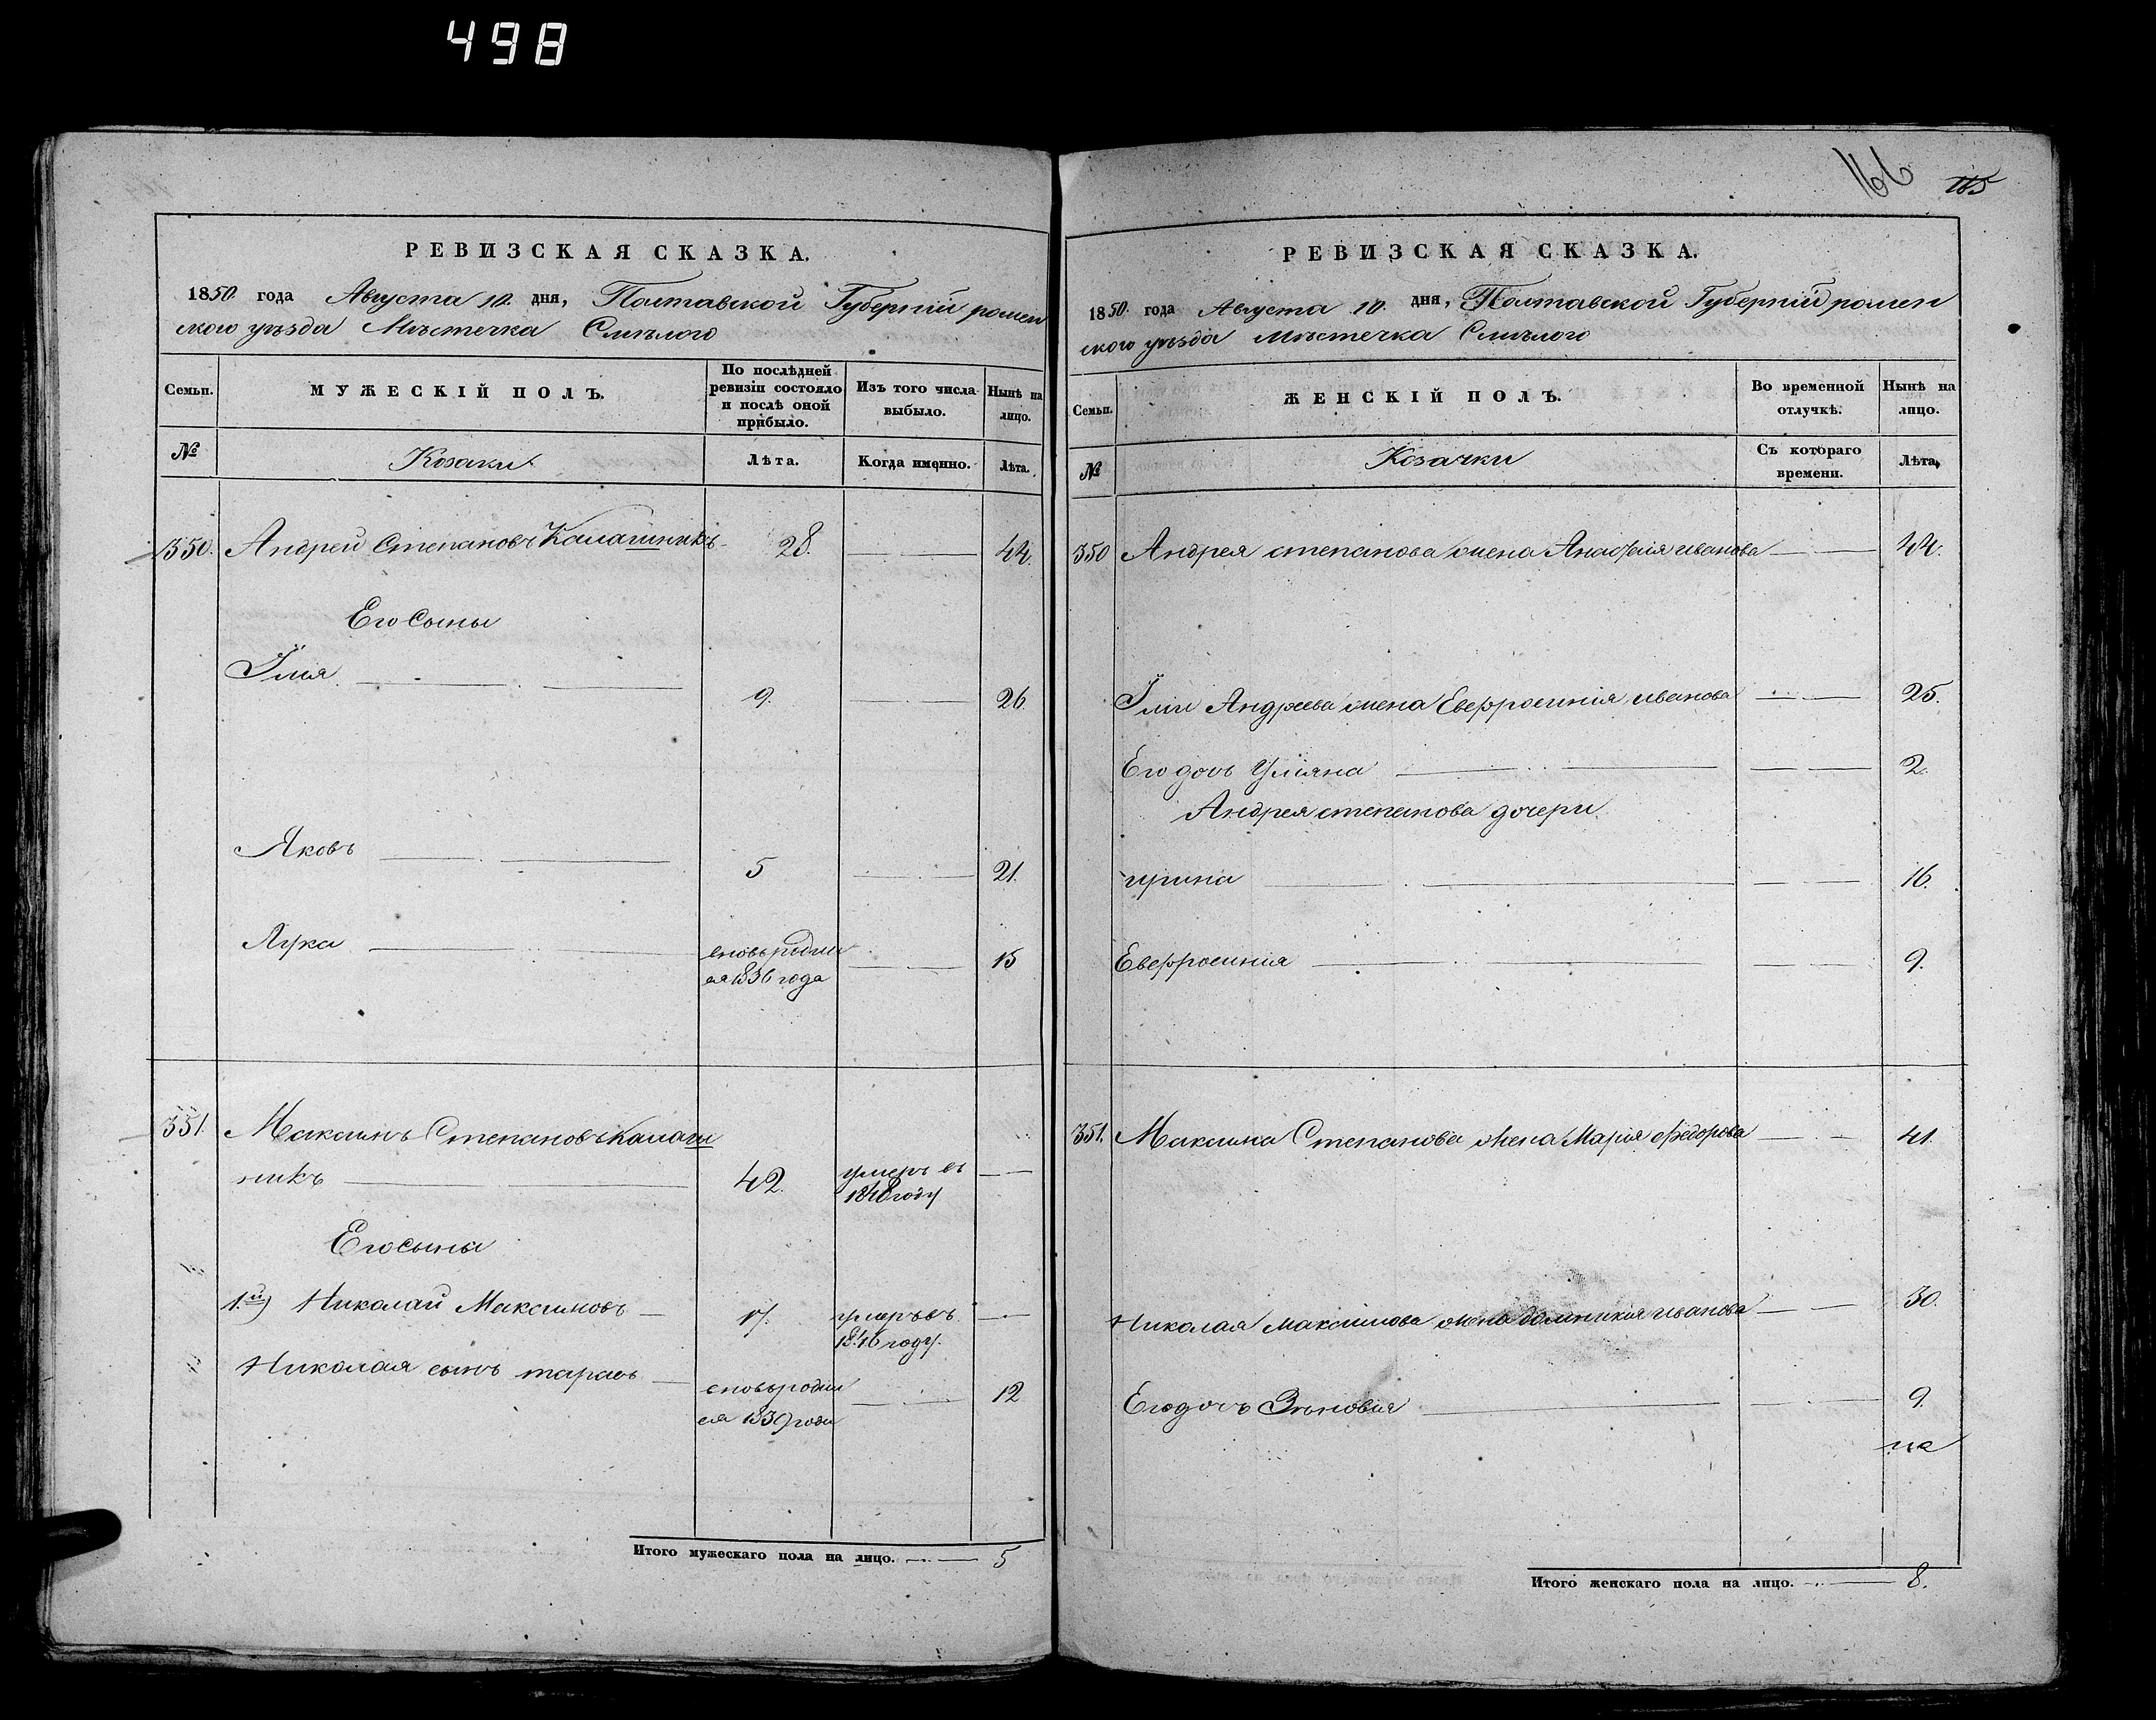 498
РЕВИЗСКАЯ СКАЗКА.
1850. года Августа 10. дня, Полтавской Губерніи ромен
ского уѣзда Мѣстечка Смѣлого
Семьи.
МУЖЕСКІЙ ПОЛЪ.
По послѣдней
ревизіи состояло
и послѣ оной
прибыло.
Изъ того числа
выбыло.
Нынѣ на
лицо.
№
Козаки
Лѣта.
Когда именно.
Лѣта.
350. Андрей Степановъ Калашникъ 28. 44.
Его Сыны
Илія 9. 26
Яковъ 5 21.
Лука
вновь родил
ся 1836 года
15
351. Максимъ Степановъ Калаш
никъ 42.
умеръ въ
1848 году
Его сыны
1.й) Николай Максимовъ 17.
умеръ въ
1846 году.
Николая сынъ тарасъ
вновь родил
ся 1839 года
12
Итого мужескаго пола на лицо. 5
166 165
РЕВИЗСКАЯ СКАЗКА.
1850. года Августа 10. дня, Полтавской Губерніи ромен
ского уѣзда мѣстечка Смѣлого
Семьи.
ЖЕНСКІЙ ПОЛЪ.
Во временной
отлучкѣ.
Нынѣ на
лицо.
№
Козачки
Съ котораго
времени.
Лѣта.
350 Андрея степанова жена иванова 44.
Иліи Андреева жена Евфросинія иванова 25.
Его дочь Уліяна 2.
Андрея степанова дочери
ирина 16.
Евфросинія 9.
351. Максима Степанова жена Марія Федорова 41.
Николая максимова жена домникія иванова 30.
Его дочь Зѣновія 9.
Итого женскаго пола на лицо. 8.